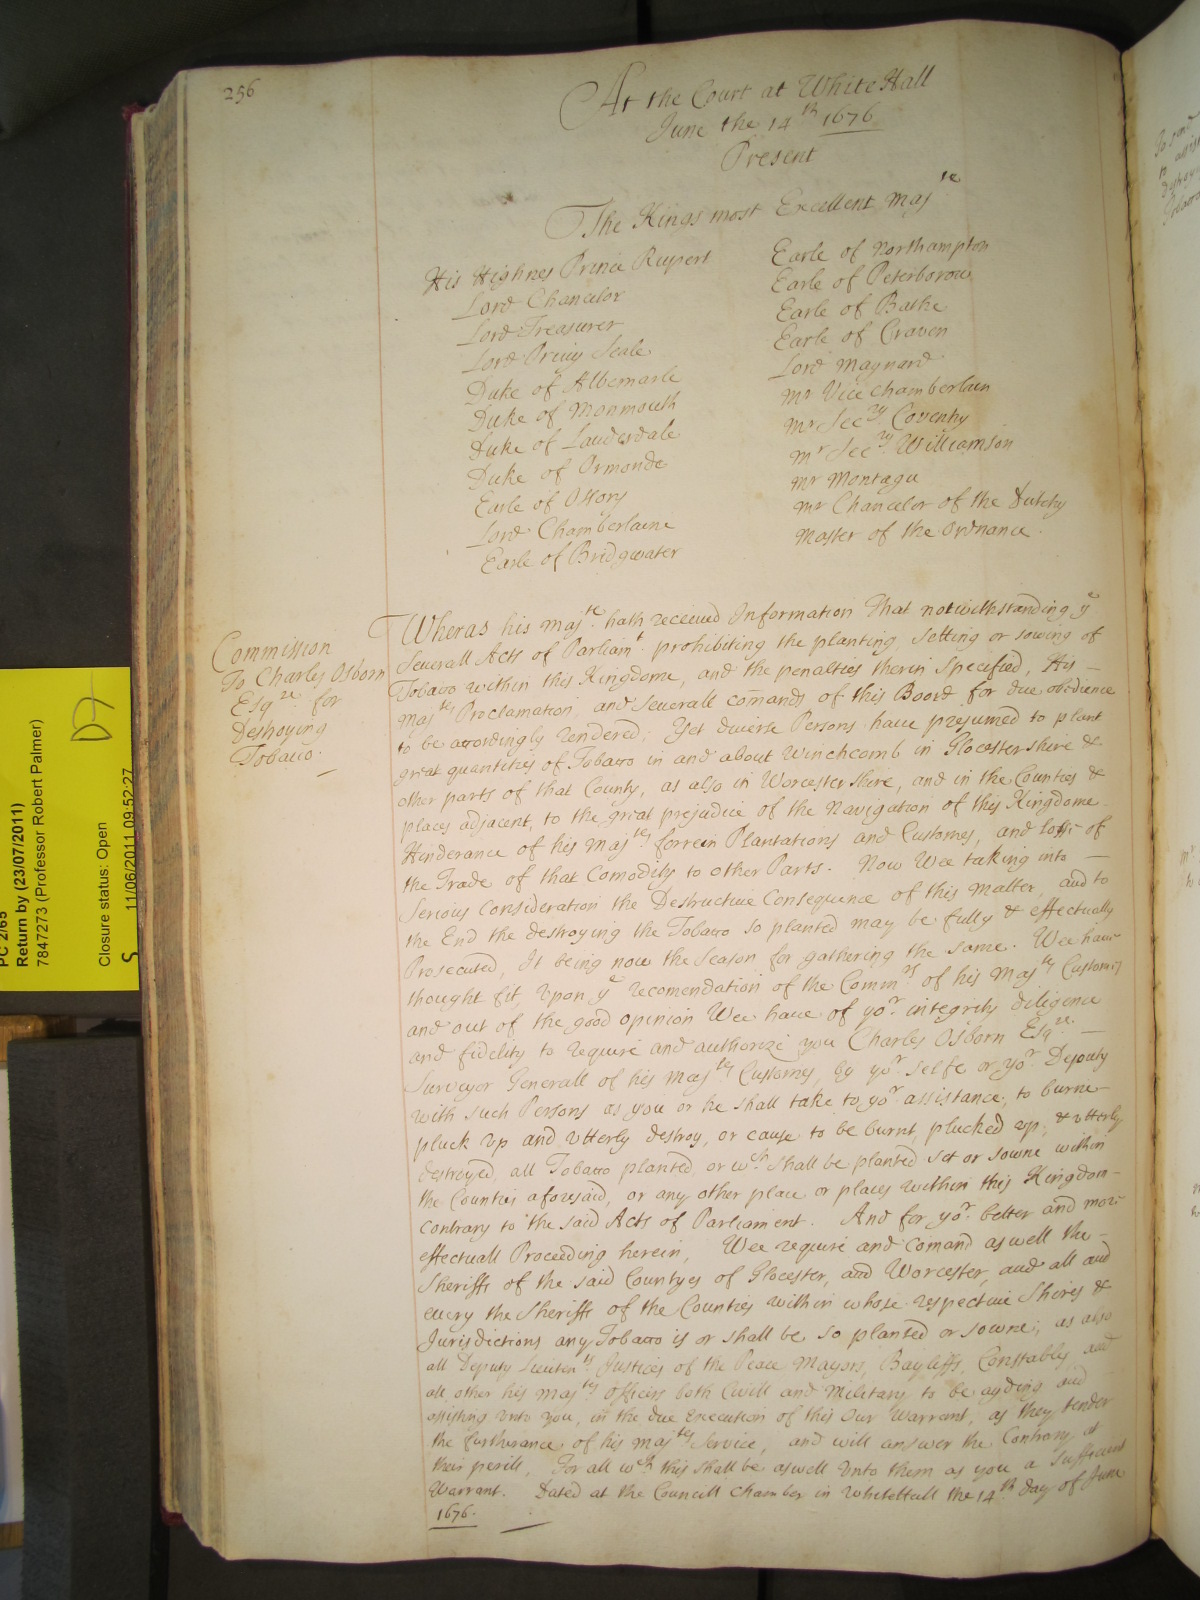 256
At the Court at White Hall
June the 14th 1676
Present
The Kings most Excellent Majte
His Highnes Prince Rupert
Lord Chancelor
Lord Treasurer
Lord Privy Seale
Duke of Albemarle
Duke of Monmouth
Duke of Lauderdale
Duke of Ormonde
Earle of Ossory
Lord Chamberlaine
Earle of Bridgwater
Earle of Northampton
Earle of Peterborow
Earle of Bathe
Earle of Craven
Lord Maynard
Mr Vice Chamberlain
Mr Secry Coventry
Mr Secry Williamson
Mr Montagu
Mr Chancelor of the Dutchy
Master of the Ordnance.
Commission
To Charles Osborn
Esqre for
Destroying
Tobacco.
Wheras his Majte hath received Information That notwithstanding ye
severall Acts of Parliamt prohibiting the planting, setting or sowing of
Tobacco within this Kingdome, and the penalties therin specified, His
Majtys Proclamation, and severall comands of this Board for due obedience
to be accordingly rendered; Yet diverse Persons have presumed to plant
great quantities of Tobacco in and about Winchcomb in Glocestershire &
other parts of that County, as also in Worcestershire, and in the Counties &
places adjacent, to the great prejudice of the Navigation of this Kingdome
Hinderance of his Majtys forrein Plantations and Customes, and losse of
the Trade of that Comodity to other Parts. Now Wee taking into
serious consideration the Destructive Consequence of this Matter, and to
the End the destroying the Tobacco so planted may be fully & effectually
Prosecuted, It being now the Season for gathering the same. Wee have
thought fit, upon ye recomendation of the Commrs of his Majtys Customes
and out of the good opinion Wee have of yor integrity diligence
and fidelity to require and authorize you Charles Osborn Esqre
Surveyor Generall of his Majtys Customes, by yor selfe or yor Deputy
with such Persons as you or he shall take to yor assistance, to burne
pluck up and utterly destroy, or cause to be burnt, plucked up, & utterly
destroyed, all Tobacco planted, or wch shall be planted set or sowne within
the Counties aforesaid, or any other place or places within this Kingdom
contrary to the said Acts of Parliament. And for yor better and more
effectuall Proceeding herein, Wee require and comand aswell the
Sheriffs of the said Countyes of Glocester, and Worcester, and all and
every the Sheriffs of the Counties within whose respective Shires &
Jurisdictions any Tobacco is or shall be so planted or sowne; as also
all Deputy Lieutents Justices of the Peace Mayors, Bayliffs, Constables and
all other his Majtys Officers both Civill and Military to be ayding and
assisting unto you, in the due Execution of this Our Warrant, as they tender
the furtherance of his Majtys Service, and will answer the Contrary at
their perill. For all wch this shall be aswell unto them as you a sufficient
Warrant. Dated at the Councill Chamber in Whitehall the 14th day of June
1676.
PC 2/65
Return by (23/07/2011)
7847273 (Professor Robert Palmer)
Closure status: Open
S 11/06/2011 09:52:27